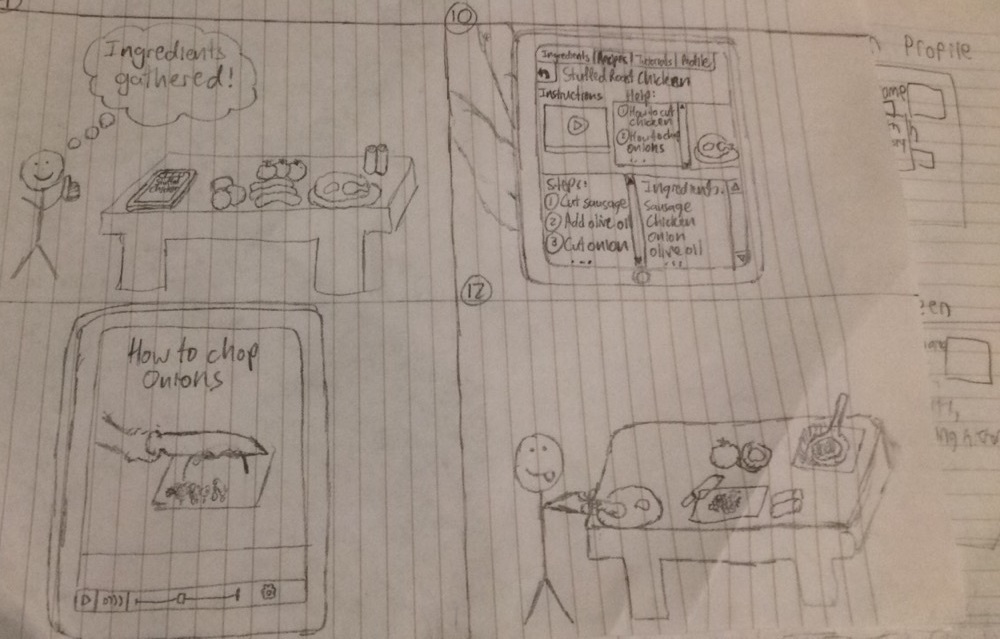 Ingredients
gathered!
10
Ingredients | Recipes | Tutorials | Profile
Stuffed Roast Chicken
Instructions
Help:
① How to cut
chicken
② How to chop
onions
...
Steps:
① Cut sausage
② Add olive oil
③ Cut onion
...
Ingredients:
Sausage
Chicken
Onion
olive oil
...
How to chop
Onions
12
Profile